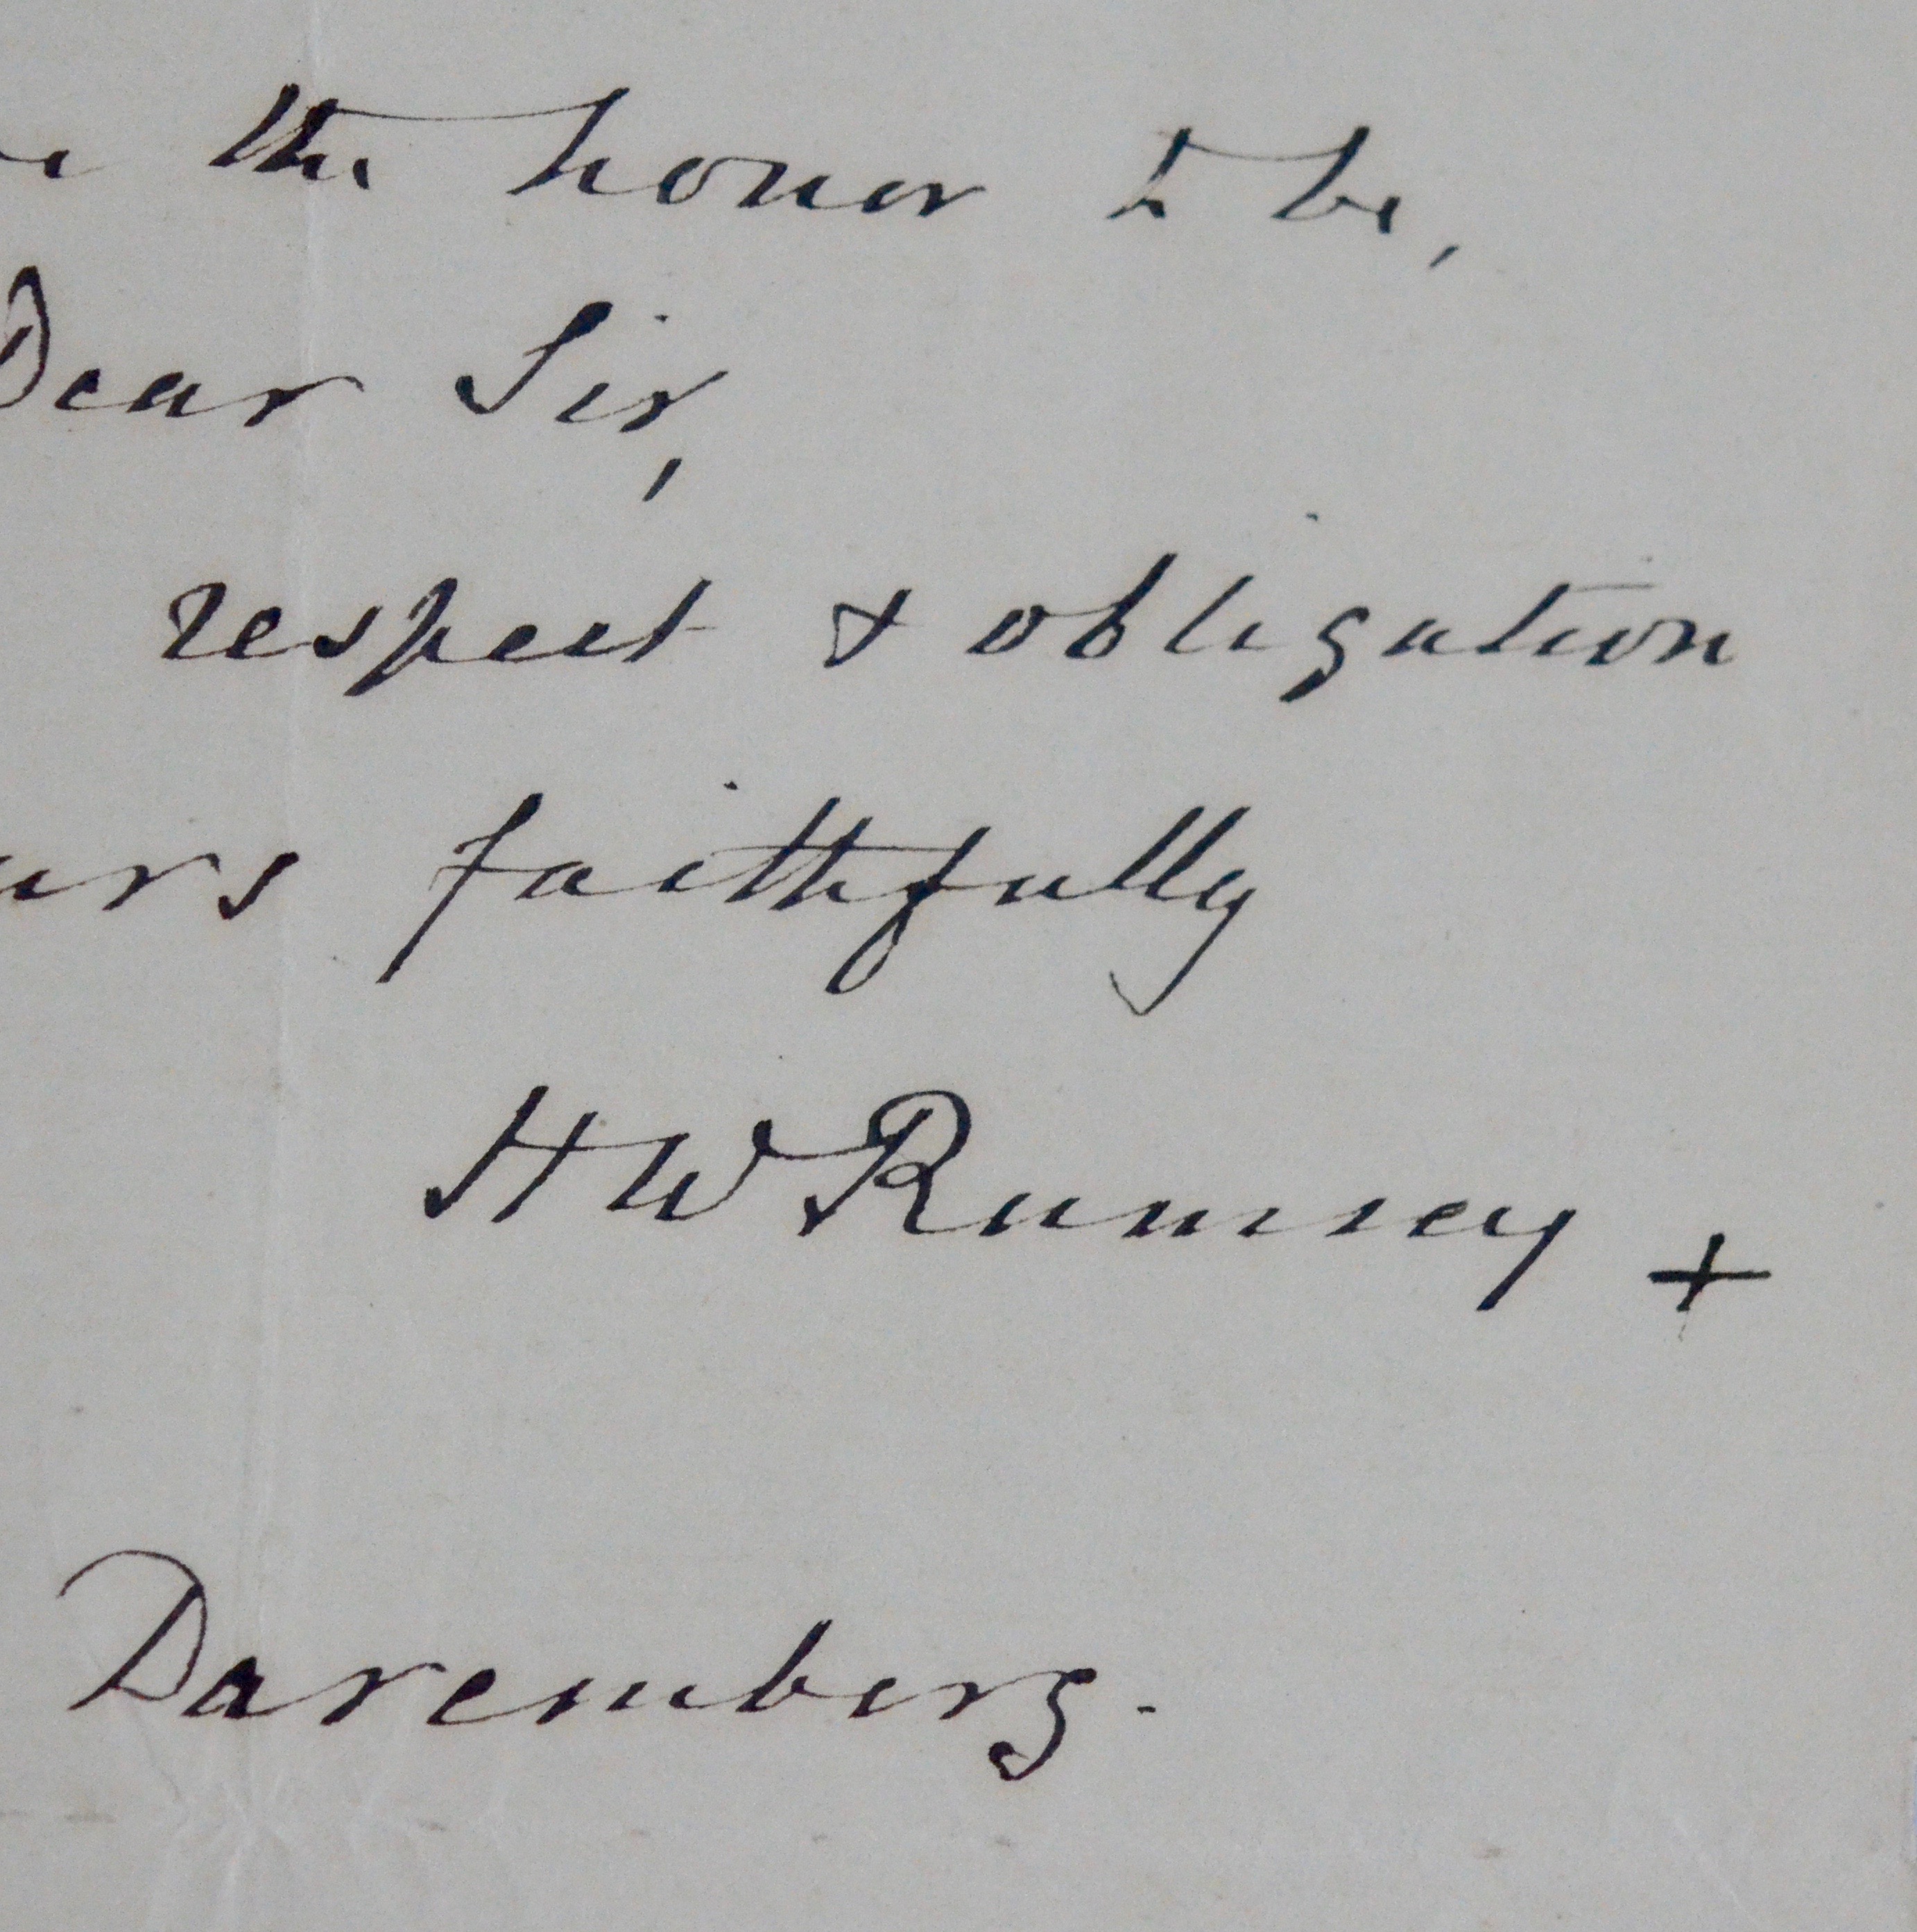 the honor to be,
Dear Sir,
respect & obligation
urs faithfully
HW Rumsey +
Daremberg.